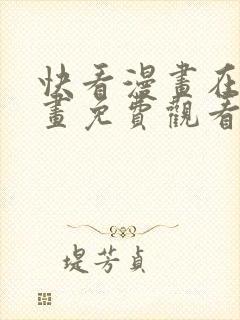 快看漫畫在
畫免費觀看
堤芳貞